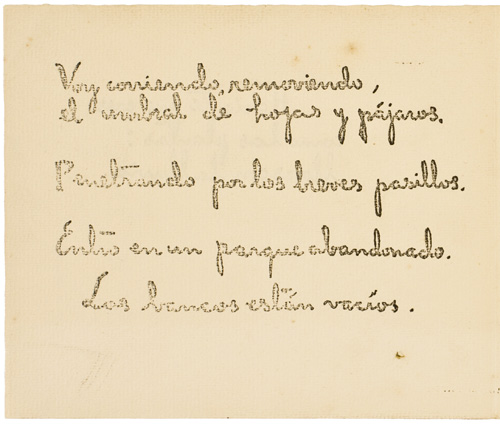 Voy corriendo, removiendo,
el umbral de hojas y pájaros.
Penetrando por los breves pasillos.
Entro en un parque abandonado.
Los bancos están vacíos.